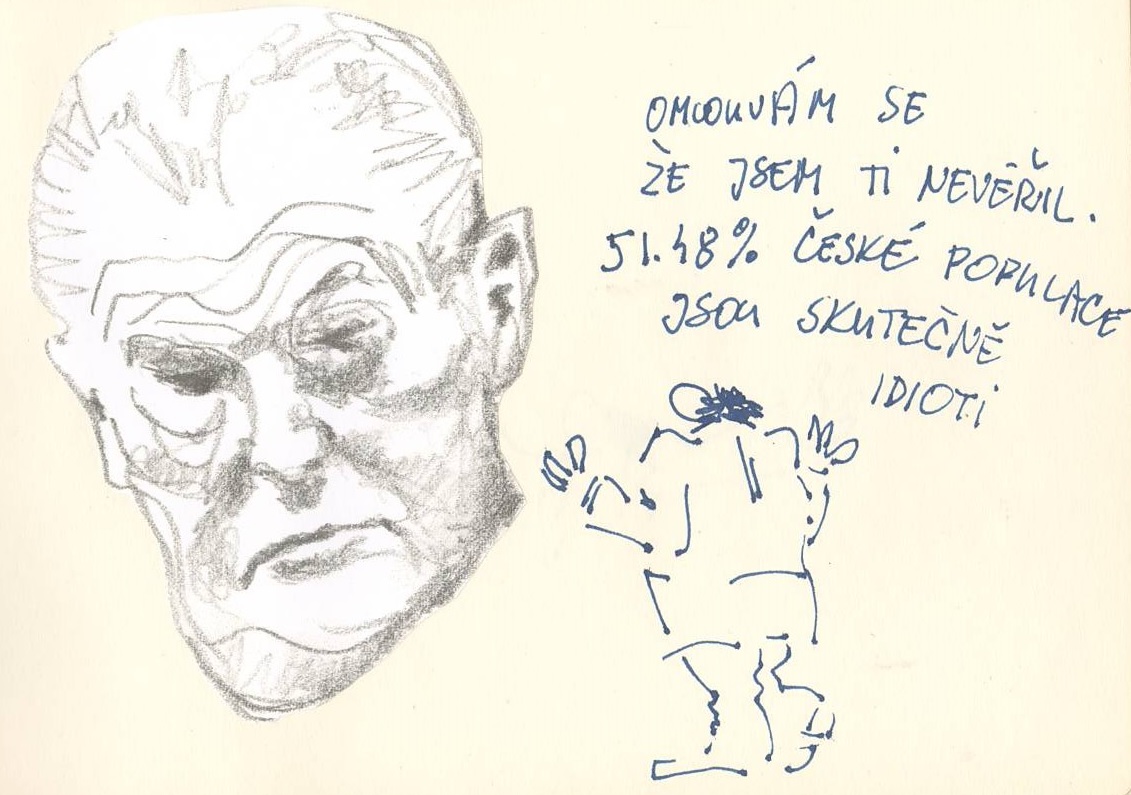 OMLOUVÁM SE
ŽE JSEM Ti NEVĚŘIL.
51.48% ČESKÉ POPULACE
JSOU SKUTEČNĚ
IDIOTi